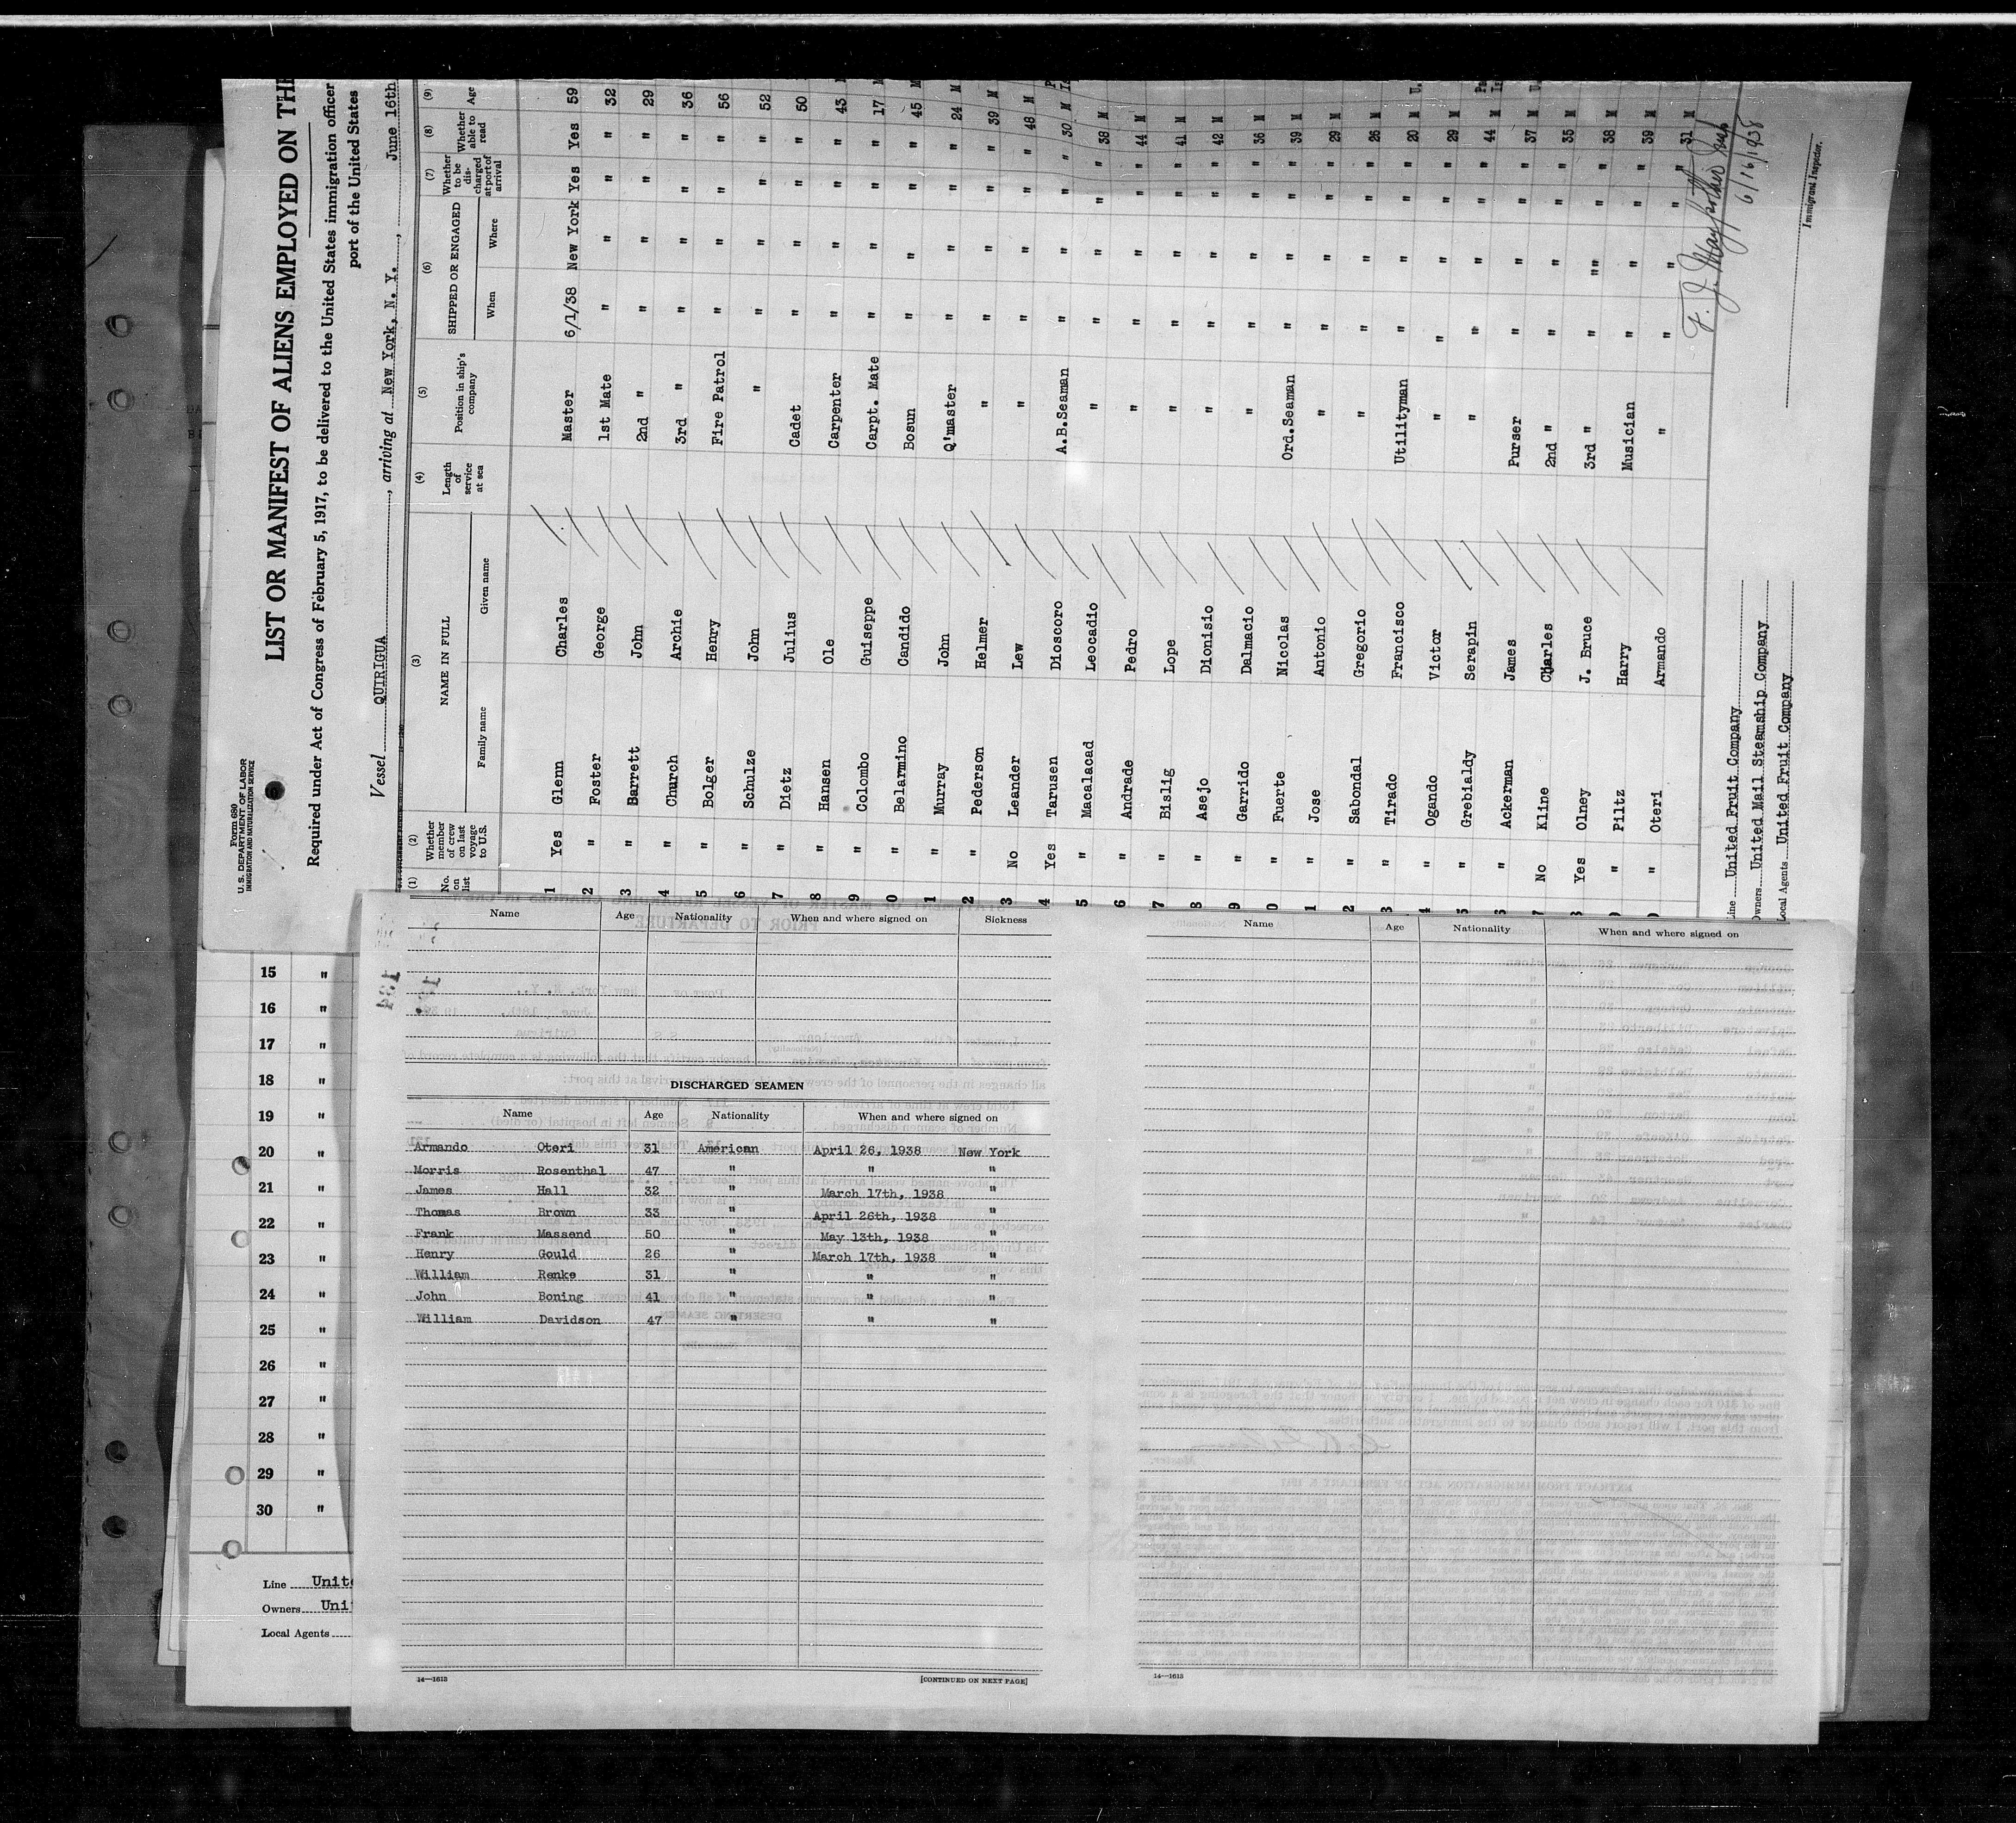 Form 680
U. S. DEPARTMENT OF LABOR
IMMIGRATION AND NATURALIZATION SERVICE
LIST OR MANIFEST OF ALIENS EMPLOYED ON THE
Required under Act of Congress of February 5, 1917, to be delivered to the United States immigration officer
port of the United States
Vessel QUIRIGUA, arriving at New York, N. Y., June 16th
(1) (2) (3) (4) (5) (6) (7) (8) (9)
No. on list Whether member of crew on last voyage to U.S. NAME IN FULL Length of service at sea Position in ship's company SHIPPED OR ENGAGED Whether to be discharged at port of arrival Whether able to read Age
Family name Given name When Where
1 Yes Glenn Charles Master 6/1/38 New York Yes Yes 59
2 " Foster George 1st Mate " " " " 32
3 " Barrett John 2nd " " " " " 29
4 " Church Archie 3rd " " " " " 36
5 " Bolger Henry Fire Patrol " " " " 56
6 " Schulze John " " " " " 52
7 " Dietz Julius Cadet " " " " 50
8 " Hansen Ole Carpenter " " " " 43
9 " Colombo Guiseppe Carpt. Mate " " " " 17
0 " Belarmino Candido Bosun " " " " 45 M
1 " Murray John Q'master " " " " 24 M
2 " Pederson Helmer " " " " " 39 M
3 No Leander Lew " " " " " 48 M
4 Yes Tarusen Dioscoro A.B.Seaman " " " " 30 M
5 " Macalacad Leocadio " " " " " 38 M
6 " Andrade Pedro " " " " " 44 M
7 " Bislig Lope " " " " " 41 M
8 " Asejo Dionisio " " " " " 42 M
9 " Garrido Dalmacio " " " " " 36 M
0 " Fuerte Nicolas Ord.Seaman " " " " 39 M
1 " Jose Antonio " " " " " 29 M
2 " Sabondal Gregorio " " " " " 26 M
3 " Tirado Francisco Utilityman " " " " 20 M U.
4 " Ogando Victor " " " " " 29 M
5 " Grebialdy Serapin " " " " " 44 M
6 " Ackerman James Purser " " " " 37 M
7 No Kline Charles 2nd " " " " " 35 M
8 Yes Olney J. Bruce 3rd " " "" " " 38 M
9 " Piltz Harry Musician " " " " 39 M
0 " Oteri Armando " " " " " 31 M
6/16/1938
Immigrant Inspector.
Line United Fruit Company
Owners United Mail Steamship Company
Local Agents United Fruit Company
15 "
16 "
17 "
18 "
19 "
20 "
21 "
22 "
23 "
24 "
25 "
26 "
27 "
28 "
29 "
30 "
Line Unite
Owners Uni
Local Agents
Name Age Nationality When and where signed on Sickness
DISCHARGED SEAMEN
Name Age Nationality When and where signed on
Armando Oteri 31 American April 26, 1938 New York
Morris Rosenthal 47 " " "
James Hall 32 " March 17th, 1938 "
Thomas Brown 33 " April 26th, 1938 "
Frank Massend 50 " May 13th, 1938 "
Henry Gould 26 " March 17th, 1938 "
William Renke 31 " " "
John Boning 41 " " "
William Davidson 47 " " "
14—1613
[CONTINUED ON NEXT PAGE]
Name Age Nationality When and where signed on
14—1613